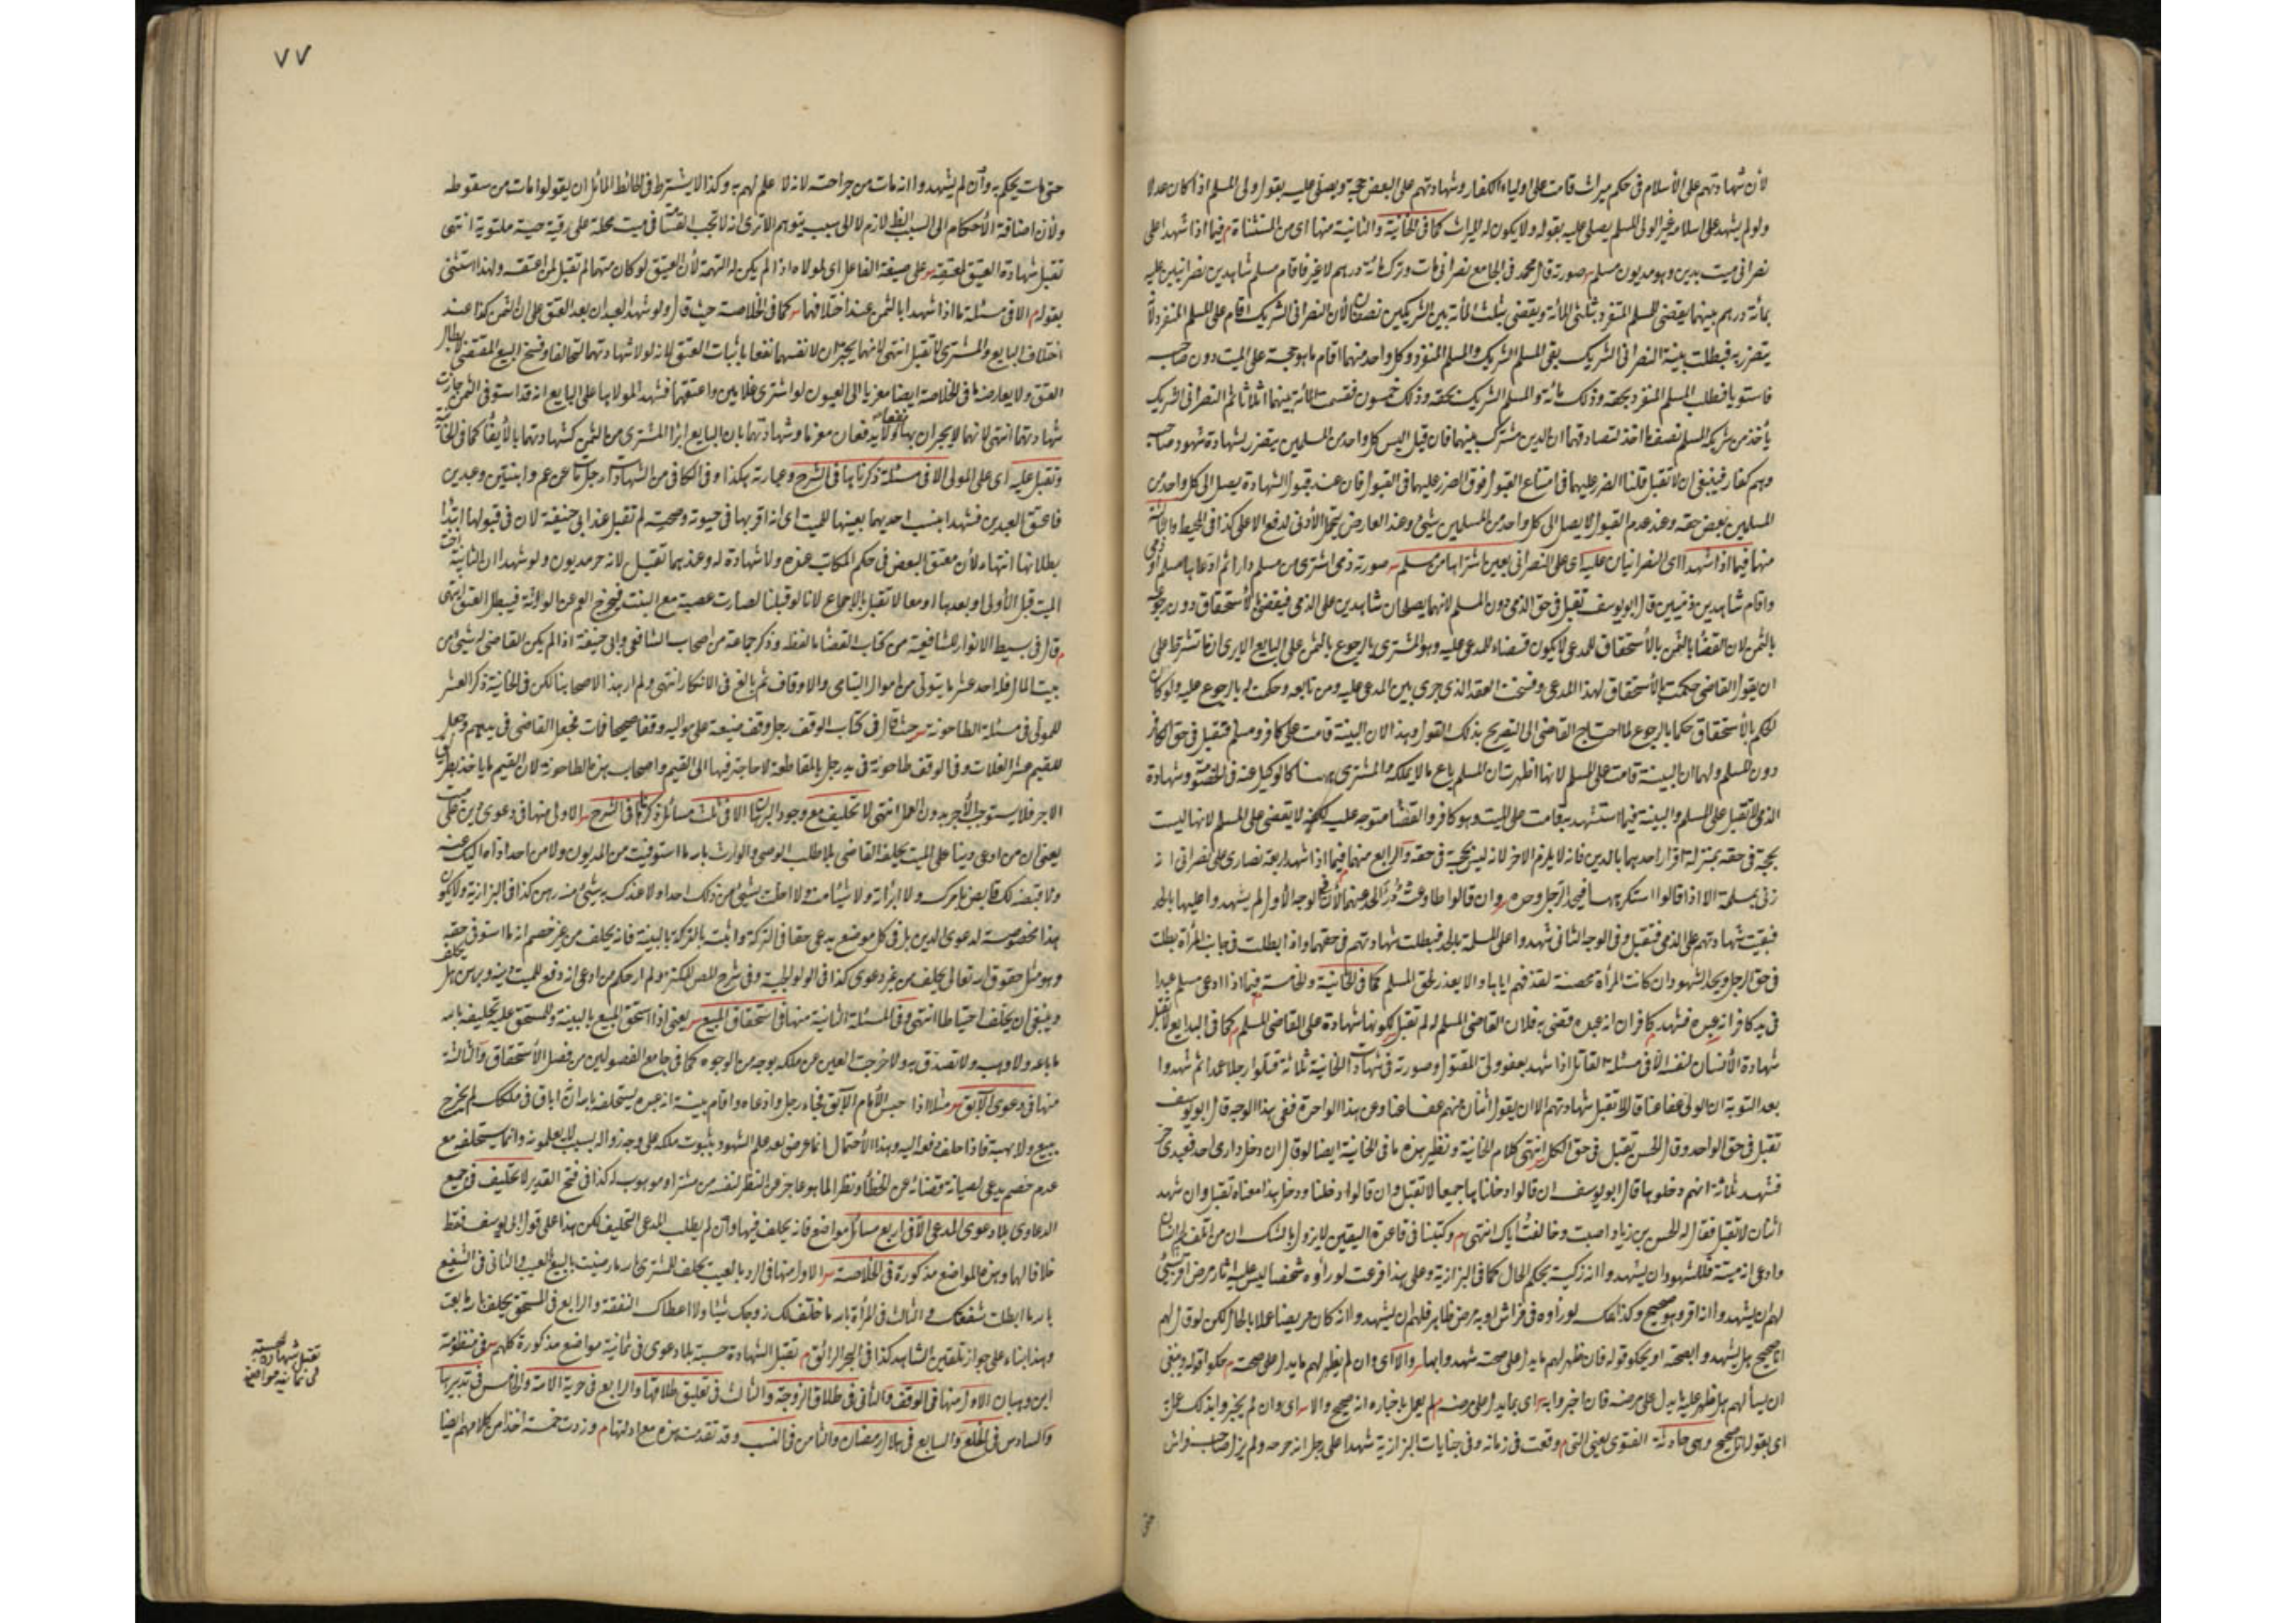 لأن شهادتهم على الأسلام فى حكم ميراث قامت على اولياءه الكفار وشهادتهم على البعض حجة ويصلى عليه بقول ولى المسلم اذا كان عدلا
ولو لم يشهد على اسلامه غير الولى المسلم يصلى عليه بقوله ولا يكون له الميراث كما فى الخانية والثانية منها اى من المستثناة م فيما اذا شهدا على
نصرانى ميت بدين وهو مديون مسلم صورته قال محمد فى الجامع نصرانى مات وترك مائة درهم لا غير فاقام مسلم شاهدين نصرانيين عليه
بمائة درهم بينهما يقضى للمسلم المتفرد بثلثى المائة ويقضى بثلث المائة بين الشريكين نصفان لأن النصرانى الشريك اقام على المسلم المنفرد لأ
يتضرر به فبطلت بينة النصرانى الشريك بقى المسلم الشريك والمسلم المنفرد وكل واحد منهما اقام ما هو حجة على الميت دون صاحبه
فاستويا فطلب المسلم المنفرد بحقه وذلك مائة والمسلم الشريك بحقه وذلك خمسون فقسمت المائة بينهما اثلاثا ثم النصرانى الشريك
يأخذ من شريكه المسلم نصف ما اخذ لتصادقهما ان الدين مشترك بينهما فان قيل اليس كل واحد من المسلمين يتضرر بشهادة شهود صاحبه
وهم كفار فينبغى ان لا تقبل قلنا الضرر عليهما فى امتناع القبول فوق الضرر عليهما فى القبول فان عند قبول الشهادة يصل الى كل واحد من
المسلمين بعض حقه وعند عدم القبول لا يصل الى كل واحد من المسلمين شئ وعند التعارض يتحمل الأدنى لدفع الاعلى كذا فى المحيط والثالثة
منها فيما اذا شهدا اى النصرانيان عليه اى على النصرانى بعين اشتراها من مسلم صورته ذمى اشترى من مسلم دارا ثم ادعاها مسلم او ذمى
واقام شاهدين ذميين قال ابو يوسف تقبل فى حق الذمى دون المسلم لانهما يصلحان شاهدين على الذمى فيقضى بالأستحقاق دون رجوعه
بالثمن لان القضا بالثمن بالأستحقاق للمدعى لا يكون قضاء للمدعى عليه وهو المشترى بالرجوع بالثمن على البايع الا يرى انما تشترط على
ان يقول القاضى حكمت بالأستحقاق لهذا المدعى وفسخت العقد الذى جرى بين المدعى عليه ومن تابعه وحكمت له بالرجوع عليه ولو كان
الحكم بالأستحقاق حكما بالرجوع لما احتاج القاضى الى التصريح بذلك القول وبهذا الان البينة قامت على كافر ومسلم فتقبل فى حق الكافر
دون المسلم ولهما ان البينة قامت على المسلم لانها اظهرت ان المسلم باع ما لا يملكه والمشترى ههنا كالوكيل عنه فى الخصومة وشهادة
الذمى لا تقبل على المسلم والبينة فيما استشهد به قامت على الميت وهو كافر والقضا متوجه عليه لكنه لا يقضى على المسلم لانها ليست
بحجة فى حقه بمنزلة اقرار احدهما بالدين فانه لا يلزم الاخر لانه ليس بحجة فى حقه والرابع منها فيما اذا شهد اربعة نصارى على نصرانى انه
زنى بمسلمة الا اذا قالوا استكرهها فيحد الرجل وحده وان قالوا طاوعته درئ الحد عنهما لأن فى الوجه الأول لم يشهدوا عليها بالحد
فبقيت شهادتهم على الذمى فتقبل وفى الوجه الثانى شهدوا على المسلمة بالحد فبطلت شهادتهم فى حقها واذا بطلت فى جانب المرأة بطلت
فى حق الرجل ويحد الشهود ان كانت المرأة محصنة لقذفهم اياها والا يعذر لحق المسلم كما فى الخانية والخامسة فيما اذا ادعى مسلم عبدا
فى يد كافر انه عبده فشهد كافران انه عبده قضى به فلان القاضى المسلم له لم تقبل لكونها شهادة على القاضى المسلم كما فى البدايع لا تقبل
شهادة الأنسان لنفسه الا فى مسئلة القاتل اذا شهد بعفو ولى المقتول وصورته فى شهادات الخانية ثلاثة قتلوا رجلا عمدا ثم شهدوا
بعد التوبة ان الولى عفا عنا قال لا تقبل شهادتهم الا ان يقول اثنان منهم عفا عنا وعن هذا الواحد ففى هذا الوجه قال ابو يوسف
تقبل فى حق الواحد وقال الحسن يقبل فى حق الكل انتهى كلام الخانية ونظير هذه ما فى الخانية ايضا لو قال ان دخل دارى احد فعبدى حر
فشهد ثلاثة انهم دخلوها قال ابو يوسف ان قالوا دخلناها جميعا لا تقبل وان قالوا دخلنا ودخل هذا معناه تقبل وان شهد
اثنان لا تقبل فقال له الحسن بن زياد اصبت وخالفت اباك انتهى م وكتبنا فى قاعدة اليقين لا يزول بالشك ان من اتلف لحم انسان
وادعى انه ميتة فللشهود ان يشهدوا انه زكية بحكم الحال كما فى البزازية وعلى هذا فرعت لو رأوه شخصا ليس عليه اثار مرض اقر بشئ
لهم ان يشهدوا انه اقر وهو صحيح وكذا عكسه لو رأوه فى فراش او به مرض ظاهر فلهم ان يشهدوا انه كان مريضا عملا بالحال لكن لو قال لهم
انا صحيح هل يشهدوا بصحته او يحكوا قوله فان ظهر لهم ما يدل على صحته شهدوا بها والا اى وان لم يظهر لهم ما يدل على صحته م حكوا قوله وينبغى
ان يسألهم هل ظهر عليه ما يدل على مرضه فان اخبروا به اى بما يدل على مرضه لم يعمل باخباره انه صحيح والا اى وان لم يخبروا بذلك عمل
اى بقوله انا صحيح وهى حادثة الفتوى يعنى التى م وقعت فى زمانه وفى جنايات البزازية شهدا على رجل انه جرحه ولم يزل صاحب فراش
حتى
٧٧
حتى مات يحكم به وان لم يشهدوا انه مات من جراحته لانه لا علم لهم به وكذا لا يشترط فى الحائط المائل ان يقولوا مات من سقوطه
ولأن اضافة الأحكام الى السبب الظاهر لازم لا الى سبب يتوهم الا ترى انه لا تجب القسامة فى ميت بمحلة على رقبته حية ملتوية انتهى
تقبل شهادة العتيق لمعتقه على صيغة الفاعل اى لمولاه اذا لم يكن له التهمة لأن العتيق لو كان متهما لم تقبل لمن اعتقه ولهذا استثنى
بقوله م الا فى مسئلة ما اذا شهدا بالثمن عند اختلافهما كما فى الخلاصة حيث قال ولو شهد العبدان بعد العتق على ان الثمن كذا عند
اختلاف البايع والمشترى لا تقبل انتهى لانهما يجران لانفسهما نفعا باثبات العتق لانه لولا شهادتهما لتحالفا وفسخ البيع المقتضى لابطال
العتق ولا يعارضه ما فى الخلاصة ايضا معزيا الى العيون لو اشترى غلامين واعتقهما فشهد المولاهما على البايع انه قد استوفى الثمن جازت
شهادتهما انتهى لانهما لا يجران بها نفعا ولا يدفعان مغرما وشهادتهما بان البايع ابرأ المشترى من الثمن كشهادتهما بالأيفاء كما فى الخانية
وتقبل عليه اى على المولى الا فى مسئلة ذكرناها فى الشرح وعبارته هكذا وفى الكافى من الشهادات رجل مات عن عم وابنتين وعبدين
فاعتق العبدين فشهدا ببنت احديهما بعينها للميت اى انه اقر بها فى حيوته وصحته لم تقبل عند ابى حنيفة لان فى قبولها ابتداء
بطلانها انتهاء لأن معتق البعض فى حكم المكاتب عنده ولا شهادة له وعندهما تقبل لانه حر مديون ولو شهدا ان الثانية اخت
الميت قبل الأولى او بعدها او معا لا تقبل بالاجماع لانا لو قبلنا لصارت عصبة مع البنت فيخرج العم عن الوراثة فيبطل العتق انتهى
م قال فى بسيط الانوار للشافعية من كتاب القضا ما لفظه وذكر جماعة من اصحاب الشافعى وابى حنيفة اذا لم يكن للقاضى شئ من
بيت المال فله اخذ عشر ما يتولى من اموال اليتامى والاوقاف ثم بالغ فى الانكار انتهى ولم ار هذا لاصحابنا لكن فى الخانية ذكر العشر
للمولى فى مسئلة الطاحونة حيث قال فى كتاب الوقف رجل وقف ضيعة على مواليه وقفا صحيحا فمات فجعل القاضى فى يد قيم وجعل
للقيم عشر الغلات وفى الوقف طاحونة فى يد رجل بالمقاطعة لا حاجة فيها الى القيم واصحاب هذه الطاحونة لان القيم ما ياخذ بطريق
الاجر فلا يستوجب الأجر بدون العمل انتهى لا تحليف مع وجود البرهان الا فى ثلث مسائل ذكرناها فى الشرح الاولى منها فى دعوى دين على ميت
يعنى ان من ادعى دينا على الميت يحلفه القاضى بلا طلب الوصى والوارث بالله ما استوفيت من المديون ولا من احد اداه اليك عنه
ولا قبضه لك قابض بامرك ولا ابرأته ولا شيئا منه ولا احلت بشئ من ذلك احدا ولا عندك به شئ منه رهن كذا فى البزازية ولا يكون
هذا بخصوصية لدعوى الدين بل فى كل موضع يدعى حقا فى التركة واثبته بالتركة بالبينة فانه يحلف من غير خصم انه ما استوفى حقه
وهو مثل حقوق الله تعالى يحلف من غير دعوى كذا فى الولوالجية وفى شرح المص للكنز ولم ار حكم من ادعى انه دفع للميت دينه وبرهن هل يحلف
وينبغى ان يحلف احتياطا انتهى وفى المسئلة الثانية منها فى استحقاق المبيع يعنى اذا استحق المبيع بالبينة وللمستحق عليه تحليفه بالله
ما باعه ولا وهبه ولا تصدق به ولا خرجت العين عن ملكه بوجه من الوجوه كما فى جامع الفصولين من فصل الأستحقاق والثالثة
منها فى دعوى الآبق مثلا اذا حبس الأمام الآبق فجاء رجل وادعاه واقام بينة انه عبده يستحلفه بالله انه اباق فى ملكك لم يخرج
ببيع ولا هبة فاذا حلف دفعه اليه وهذا الأحتمال انما عرض بعد علم الشهود بثبوت ملكه على وجه زواله بسبب لا يعلمونه وانما يستحلف مع
عدم خصم يدعى لصيانة قضائه عن الخطأ ونظرا لما هو عاجز عن النظر لنفسه من مشترا وموهوب له كذا فى فتح القدير لا تحليف فى جميع
الدعاوى بلا دعوى المدعى الا فى اربع مسائل مواضع فانه يحلف فيها وان لم يطلب المدعى التحليف لكن هذا على قول ابى يوسف فقط
خلافا لهما وهذه المواضع مذكورة فى الخلاصة الاول منها فى الرد بالعيب يحلف المشترى بالله ما رضيت بالبيع المعيب والثانى فى الشفيع
بالله ما ابطلت شفعتك والثالث فى المرأة بالله ما خلف لك زوجك شيئا ولا اعطاك النفقة والرابع فى المستحق يحلف بالله ما بعت
وهذا بناء على جواز تلقين الشاهد كذا فى البحر الرائق م تقبل الشهادة حسبة بلا دعوى فى ثمانية مواضع مذكورة كلهم فى منظومة
ابن وهبان الاول منها فى الوقف والثانى فى طلاق الزوجة والثالث فى تعليق طلاقها والرابع فى حرية الامة والخامس فى تدبيرها
والسادس فى الخلع والسابع فى هلال رمضان والثامن فى النسب وقد تقدمت هذه مع ادلتها م وزدت خمسة اخذا من كلامهم ايضا
تقبل شهادة الحسبة
فى ثمانية مواضع